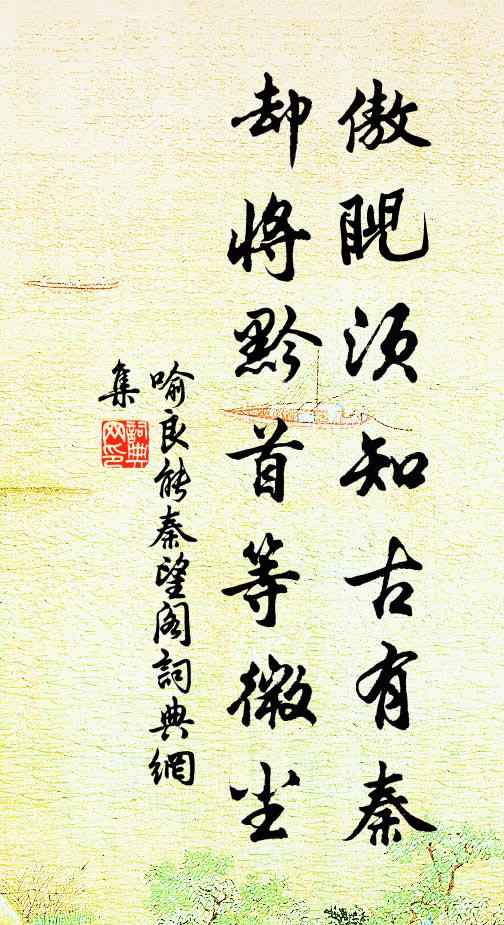 傲睨須知古有秦
却將黔首等微尘
喻良能秦望閣詞典網
集
詞典网印